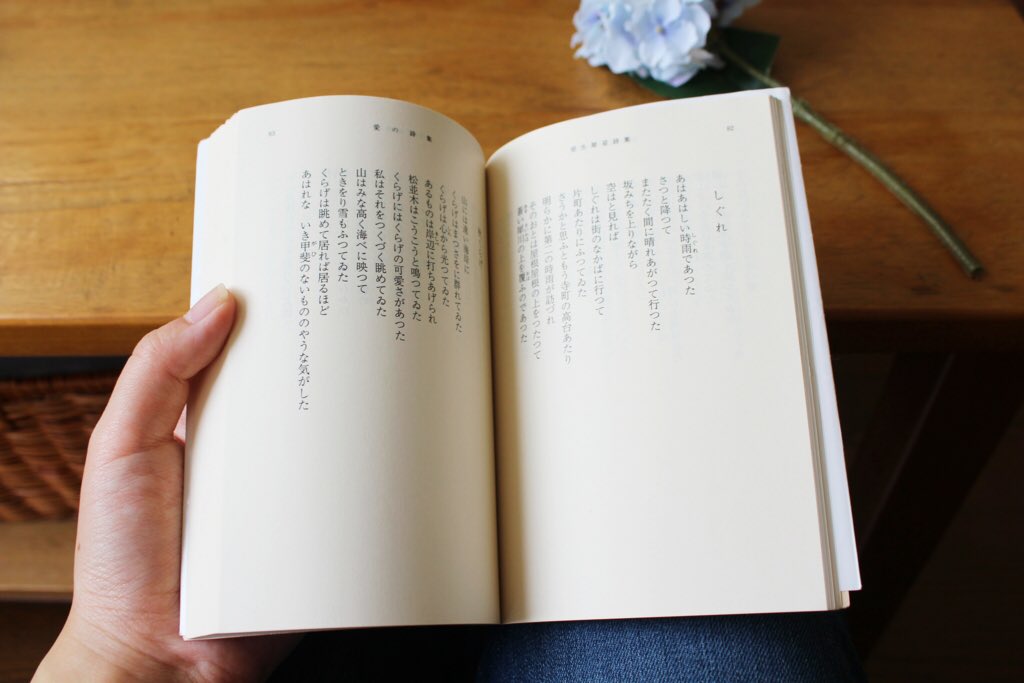 82
室生犀星詩集
しぐれ
あはあはしい時雨であつた
さつと降つて
またたく間に晴れあがつて行つた
坂みちを上りながら
空はと見れば
しぐれは街のなかばに行つて
片町あたりにふつてゐた
さうかと思ふともう寺町の高台あたり
明らかに第二の時雨が訪づれ
そのおとは屋根屋根の上をつたつて
犀川の上を覆ふのであつた
愛の詩集
くらげ
山には 海岸に
くらげはまつさをに群れてゐた
くらげは心から光つてゐた
あるものは岸辺に打ちあげられ
松並木はこうこうと鳴つてゐた
くらげにはくらげの可愛さがあつた
私はそれをつくづく眺めてゐた
山はみな高く海べに映つて
ときをり雪もふつてゐた
くらげは眺めて居れば居るほど
あはれな いき甲斐のないもののやうな気がした